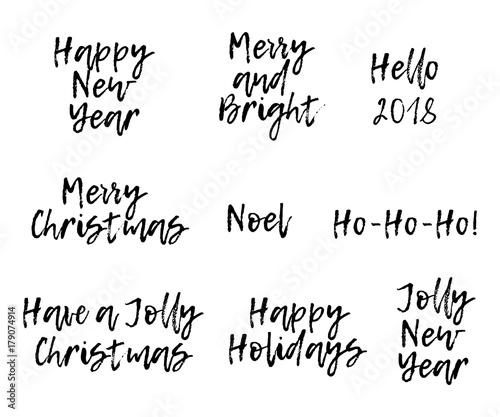 Happy
New
Year
Merry
and
Bright
Hello
2018
Merry
Christmas
Noel
Ho-Ho-Ho!
Have a Jolly
Christmas
Happy
Holidays
Jolly
New
Year
Adobe Stock | #179074914